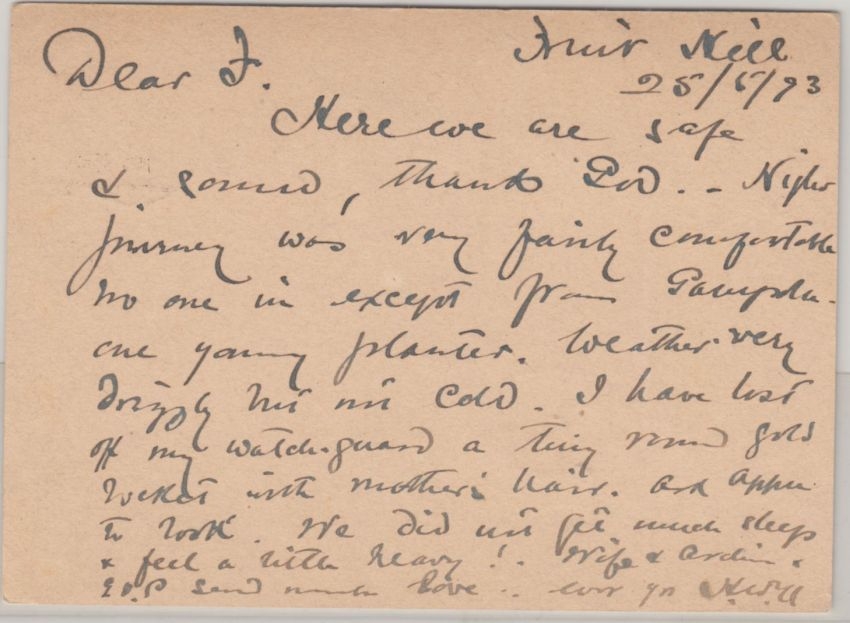 Fruit Hill
25/5/93
Dear F.
Here we are safe
& sound, thank God. - Night
journey was very fairly comfortable
no one in except from Gampola -
one young planter. Weather very
drizzly but not cold. I have lost
off my watch-guard a tiny round gold
locket with mother's hair. Ask Appu
to look. We did not get much sleep
& feel a little heavy!. Wife &
send much love .. ever yrs